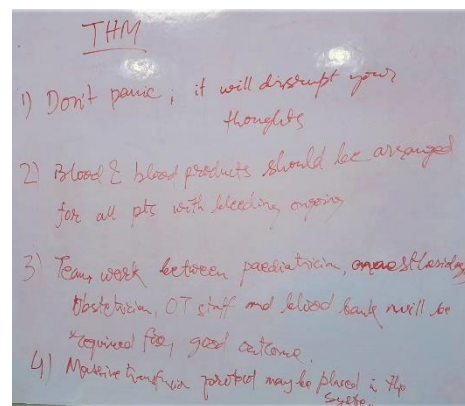 THM
1) Don't panic; it will disrupt your
thoughts
2) Blood & blood products should be arranged
for all pts with bleeding ongoing
3) Team work between paediatrician,
Obstetrician, OT staff and blood bank will be
required for good outcome.
4) Massive transfusion protocol may be placed in the
System